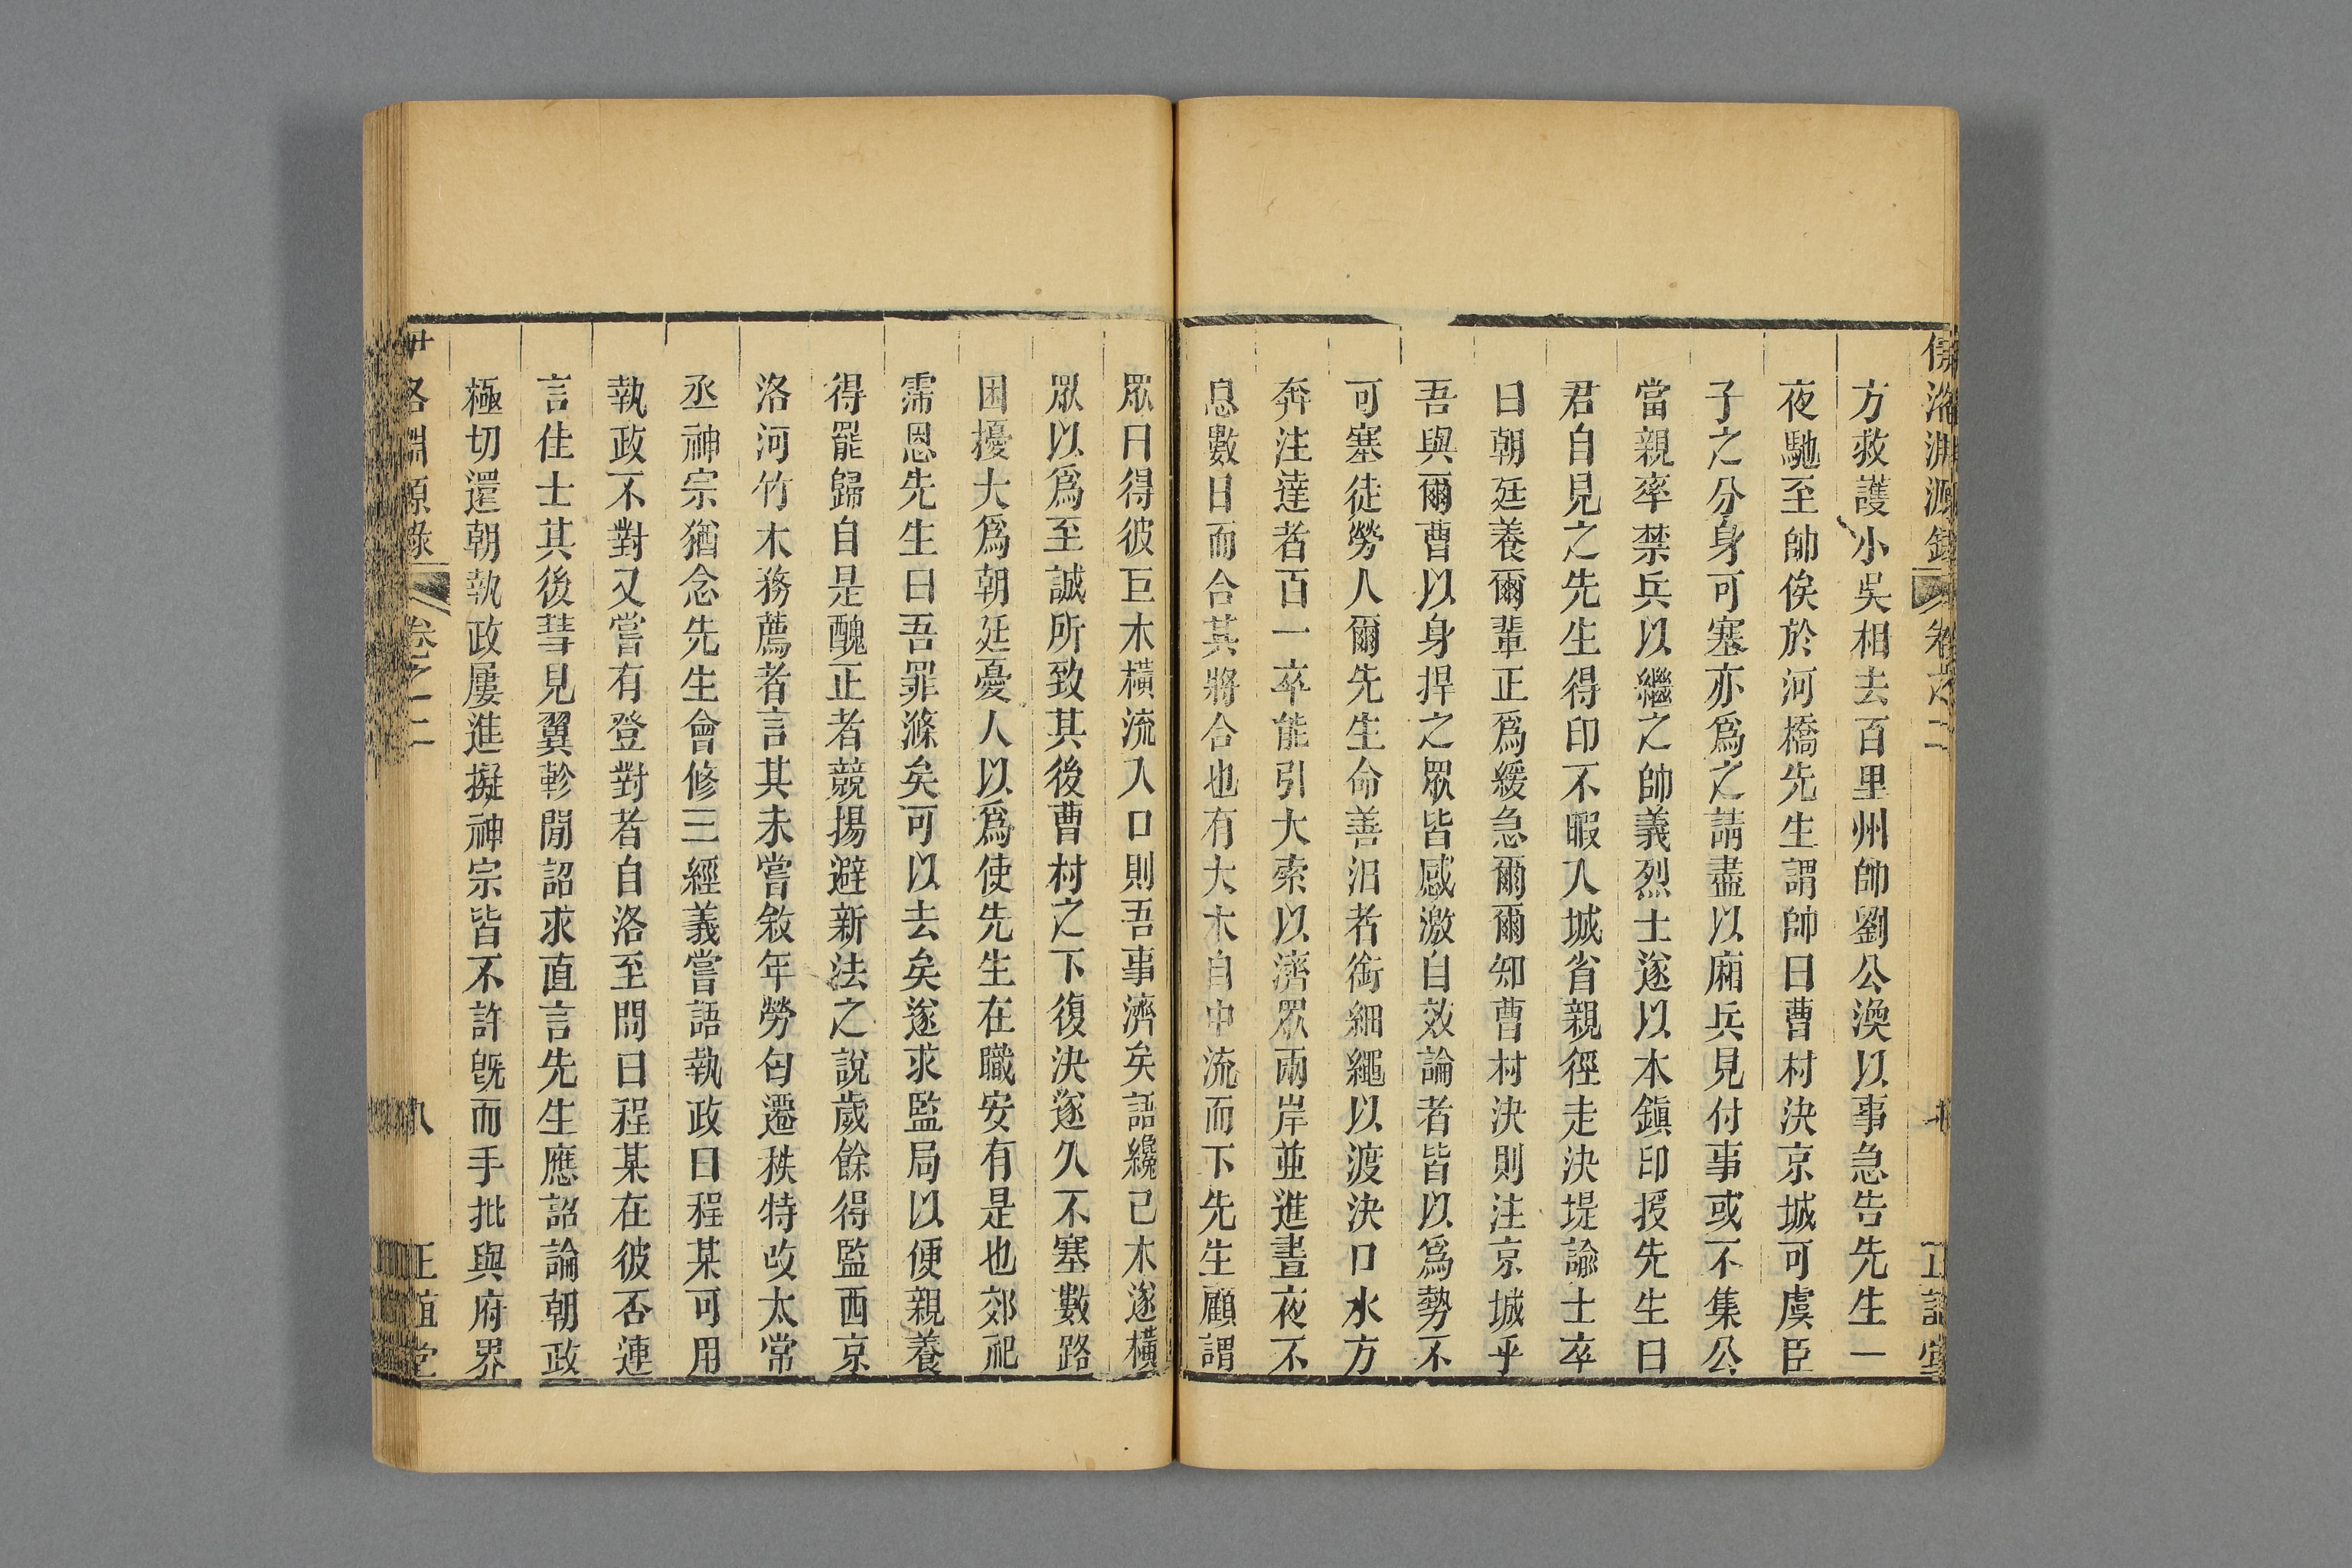 伊洛淵源錄 卷之二 七 正誼堂
方救護小吳相去百里州帥劉公渙以事急告先生一
夜馳至帥俟於河橋先生謂帥曰曹村決京城可虞臣
子之分身可塞亦爲之請盡以廂兵見付事或不集公
當親率禁兵以繼之帥義烈士遂以本鎭印授先生曰
君自見之先生得印不暇入城省親徑走決堤諭士卒
曰朝廷養爾輩正爲緩急爾爾知曹村決則注京城乎
吾與爾曹以身捍之眾皆感激自效論者皆以爲勢不
可塞徒勞人爾先生命善泅者銜細繩以渡決口水方
奔注達者百一卒能引大索以濟眾兩岸並進晝夜不
息數日而合其將合也有大木自中流而下先生顧謂
眾曰得彼巨木橫流入口則吾事濟矣語纔已木遂橫
眾以爲至誠所致其後曹村之下復決遂久不塞數路
困擾大爲朝廷憂人以爲使先生在職安有是也郊祀
霈恩先生曰吾罪滌矣可以去矣遂求監局以便親養
得罷歸自是醜正者競揚避新法之說歲餘得監西京
洛河竹木務薦者言其未嘗敘年勞匄遷秩特改太常
丞神宗猶念先生會修三經義嘗語執政曰程某可用
執政不對又嘗有登對者自洛至問曰程某在彼否連
言佳士其後彗見翼軫閒詔求直言先生應詔論朝政
極切還朝執政屢進擬神宗皆不許旣而手批與府界
伊洛淵源錄 卷之二 八 正誼堂